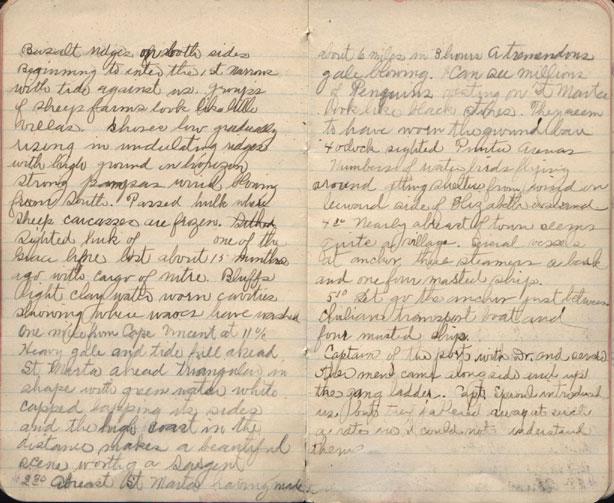 Basalt ridges on both sides
Beginning to enter the 1st Narrows
with tide against us. groups
of sheep farms look like little
villas. Shores low gradually
rising in undulating ridges
with high ground in horizon
strong pampas wind blowing
from South. Passed hulk where
sheep carcasses are frozen.
Sighted hulk of one of the
lost about 15 months
ago with cargo of nitre. Bluffs
light clay water worn cavities
showing where waves have washed
One mile from Cape Vincent at 11
Heavy gale and tide full ahead
St. Marta ahead triangular in
shape with green water white
capped its sides
and the high coast in the
distance makes a beautiful
scene worthy a Sargent
2 30 Abreast St Marta having made
about 6 miles in 3 hours A tremendous
gale blowing. Can see millions
of Penguins resting on St Marta
look like black stones. They seem
to have worn the ground bare
4 oclock sighted Punta Arenas
Numbers of water birds flying
around shelter from wind on
leeward side of Elizabeth island
4 Nearly abreast of town seems
quite a village. Several vessels
at anchor three steamers a bark
and one four masted ship.
5 10 Let go the anchor just between
Chilians transport boat and
four masted ship.
Captain of the port with Dr. and several
other men came along side and up
the gang ladder. Capt introduced
us, but they away at such
a rate we could not understand
them